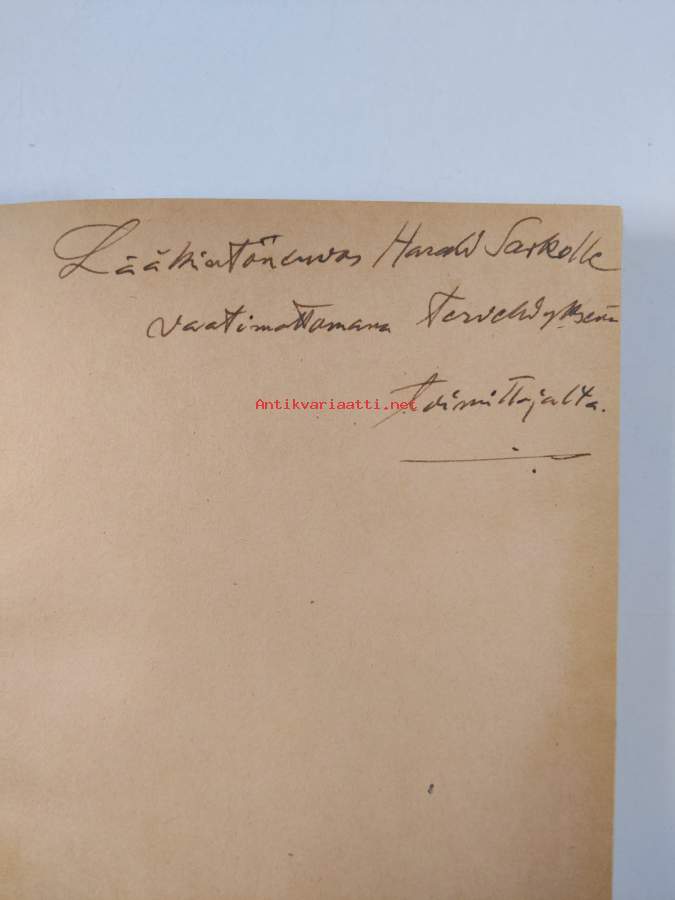 Lääkintöneuvos Harald Sarkolle
vaatimattomana tervehdyksenä
Antikvariaatti.net
Toimittajalta.